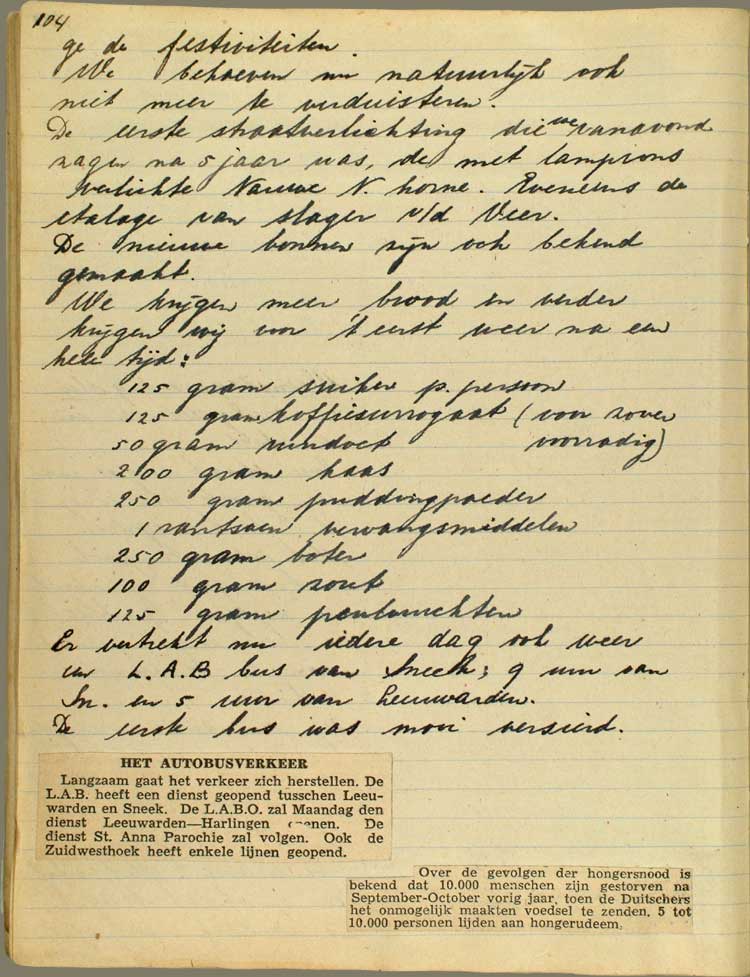 104
ge de festiviteiten.
We behoeven nu natuurlijk ook
niet meer te verduisteren.
De eerste straatverlichting die we vanavond
zagen na 5 jaar was, de met lampions
verlichte Nauwe N. horne. Eveneens de
etalage van slager v/d Veer.
De nieuwe bonnen zijn ook bekend
gemaakt.
We krijgen meer brood en verder
krijgen wij voor 't eerst weer na een
hele tijd:
125 gram suiker p. persoon
125 gram koffiesurrogaat (voor zover
50 gram rundvet voorradig)
200 gram kaas
250 gram puddingpoeder
1 rantsoen vervangsmiddelen
250 gram boter
100 gram zout
125 gram peulvruchten
Er vertrekt nu iedere dag ook weer
een L.A.B bus van Sneek; 9 uur van
Sn. en 5 uur van Leeuwarden.
De eerste bus was mooi versierd.
HET AUTOBUSVERKEER
Langzaam gaat het verkeer zich herstellen. De
L.A.B. heeft een dienst geopend tusschen Leeu-
warden en Sneek. De L.A.B.O. zal Maandag den
dienst Leeuwarden—Harlingen openen. De
dienst St. Anna Parochie zal volgen. Ook de
Zuidwesthoek heeft enkele lijnen geopend.
Over de gevolgen der hongersnood is
bekend dat 10.000 menschen zijn gestorven na
September-October vorig jaar, toen de Duitschers
het onmogelijk maakten voedsel te zenden. 5 tot
10.000 personen lijden aan hongerudeem.